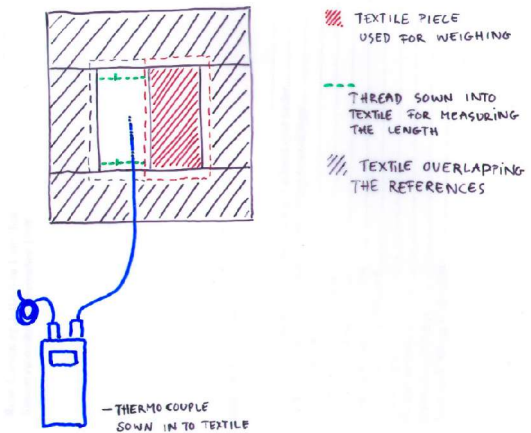 TEXTILE PIECE
USED FOR WEIGHING
THREAD SOWN INTO
TEXTILE FOR MEASURING
THE LENGTH
TEXTILE OVERLAPPING
THE REFERENCES
- THERMOCOUPLE
SOWN IN TO TEXTILE